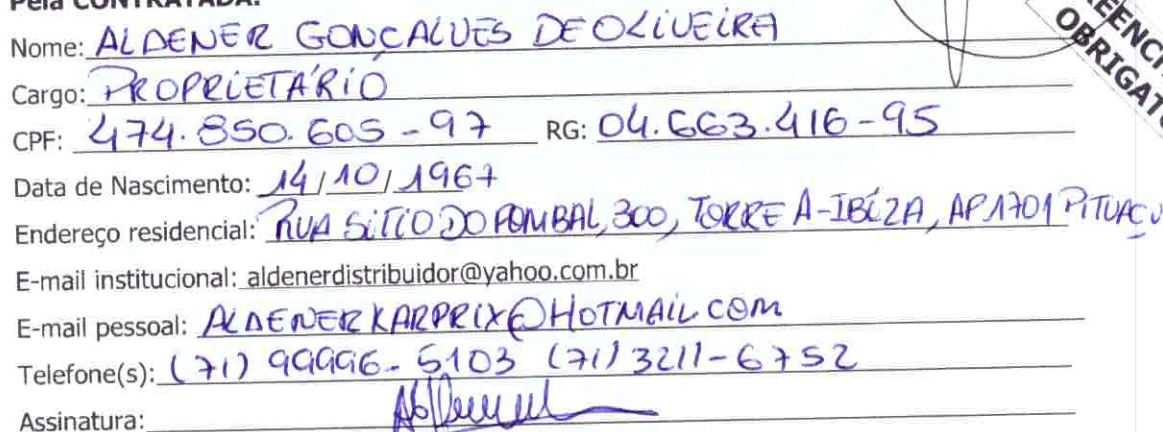 Pela CONTRATADA:
Nome: ALDENER GONCALVES DE OLIVEIRA
Cargo: PROPRIETÁRIO
CPF: 474.850.605-97 RG: 04.663.416-95
Data de Nascimento: 14/10/1967
Endereço residencial: RUA SITIO DO POMBAL, 300, TORRE A-IBIZA, AP 1701 PITUAÇU
E-mail institucional: aldenerdistribuidor@yahoo.com.br
E-mail pessoal: ALDENERKARPRIX@HOTMAIL.COM
Telefone(s): (71) 99996-5103 (71) 3211-6752
Assinatura: